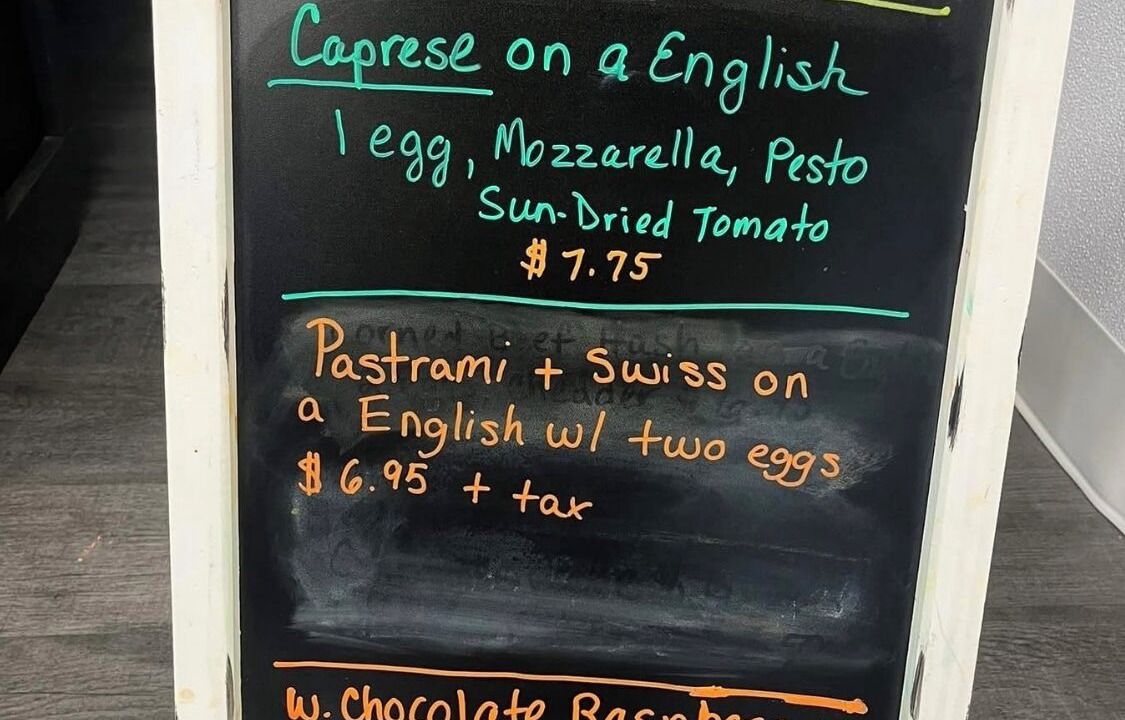 Caprese on a English
1 egg, Mozzarella, Pesto
Sun-Dried Tomato
$7.75
Corned Beef Hash
Pastrami + Swiss on
a English w/ two eggs
$6.95 + tax
w. Chocolate